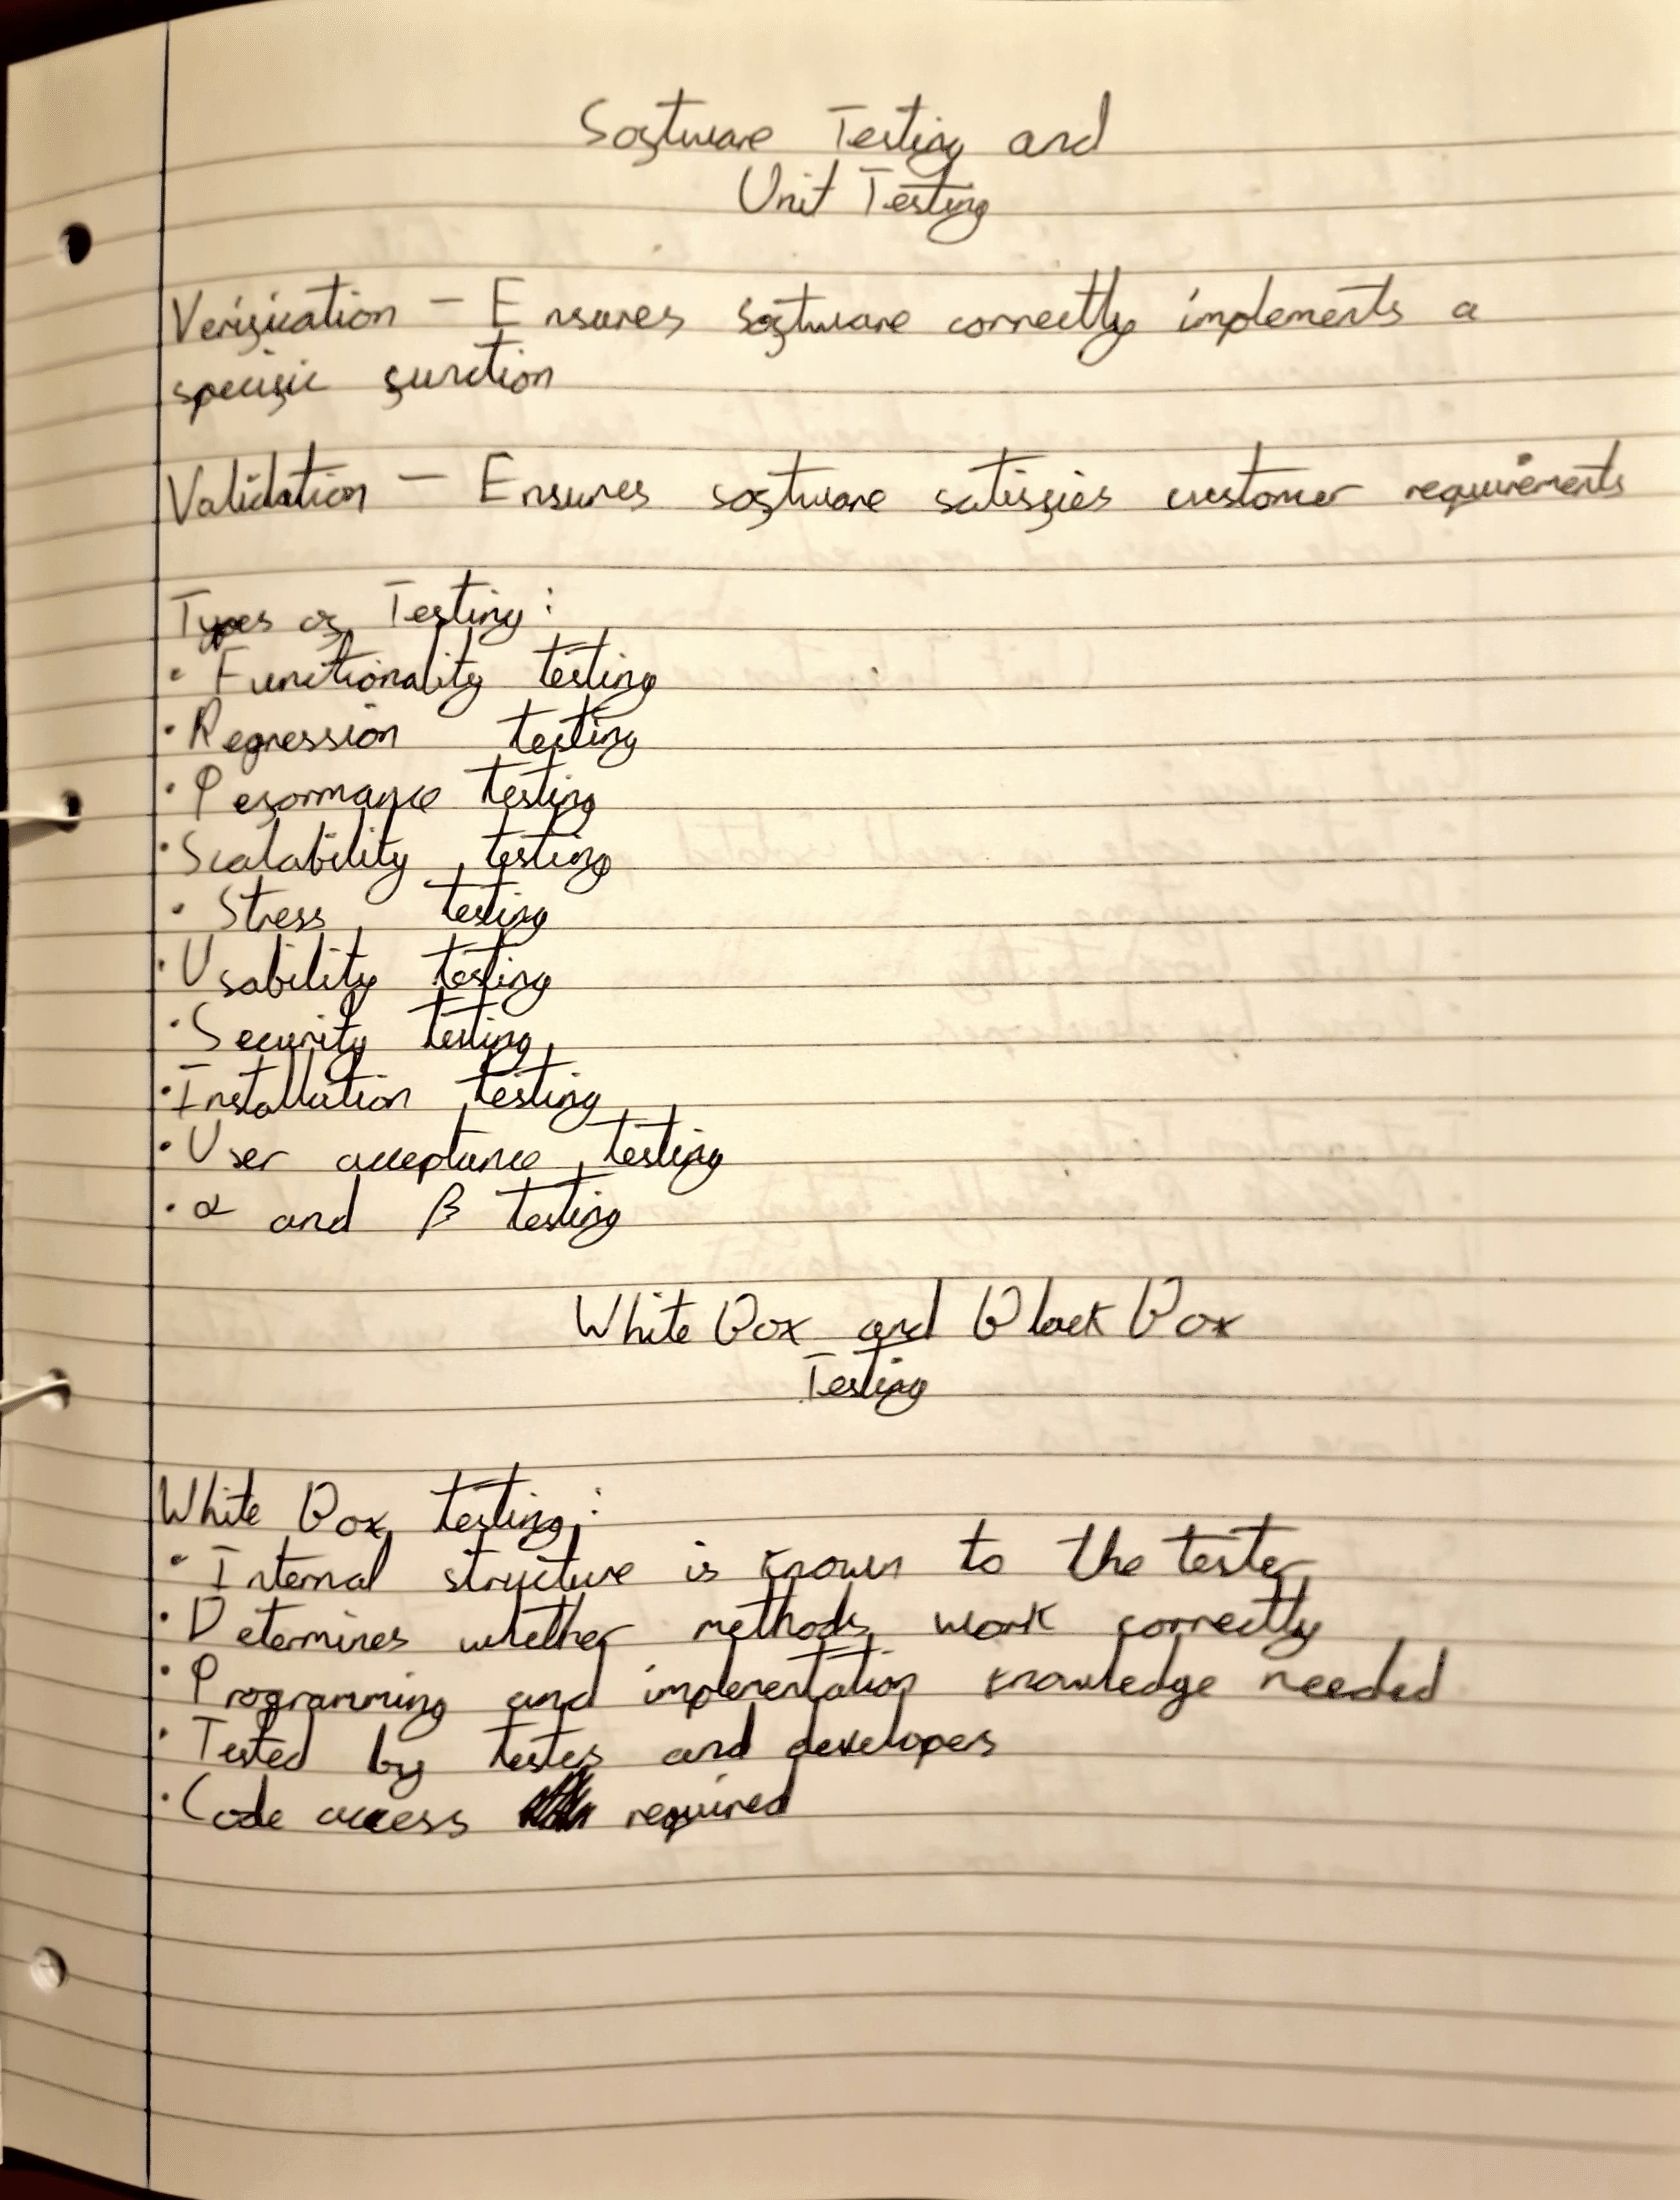 Software Testing and
Unit Testing
Verification – Ensures software correctly implements a
specific function
Validation – Ensures software satisfies customer requirements
Types of Testing:
• Functionality testing
• Regression testing
• Peformance testing
• Scalability testing
• Stress testing
• Usability testing
• Security testing
• Installation testing
• User acceptance testing
• α and β testing
White Box and Black Box
Testing
White Box testing:
• Internal structure is known to the tester
• Determines whether methods work correctly
• Programming and implementation knowledge needed
• Tested by testes and developes
• Code access required